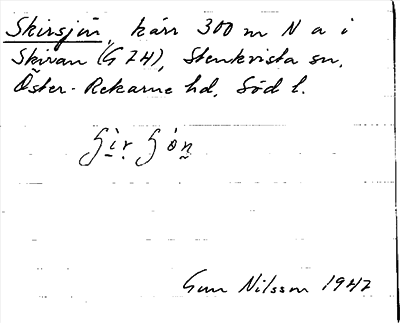 Skirsjön, kärr 300 m N a i
Skiran (G 7 H), Stenkvista sn,
Öster-Rekarne hd, Söd l.
Gun Nilsson 1947